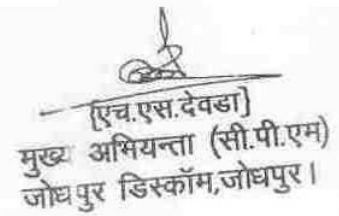 [एच.एस.देवडा]
मुख्य अभियन्ता (सी.पी.एम)
जोधपुर डिस्कॉम,जोधपुर।